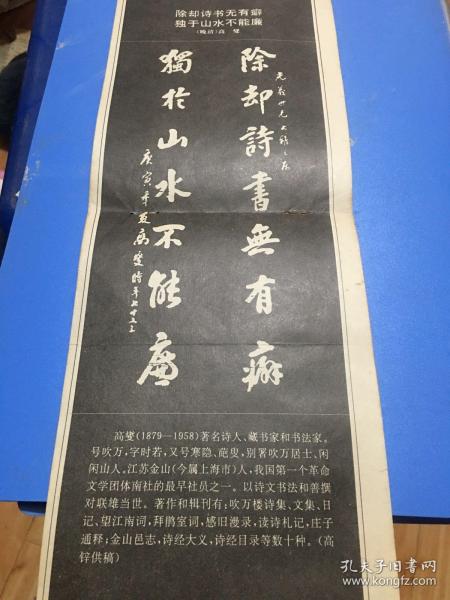 除却诗书无有癖
独于山水不能廉
(晚清)高 燮
除却詩書無有癖
獨於山水不能廉
高燮(1879—1958)著名诗人、藏书家和书法家。
号吹万,字时若,又号寒隐、葩叟,别署吹万居士、闲
闲山人。江苏金山(今属上海市)人,我国第一个革命
文学团体南社的最早社员之一。以诗文书法和善撰
对联雄当世。著作和辑刊有:吹万楼诗集、文集、日
记、望江南词,拜鹃室词,感旧漫录,读诗札记,庄子
通释;金山邑志,诗经大义,诗经目录等数十种。(高
锌供稿)
孔夫子旧书网